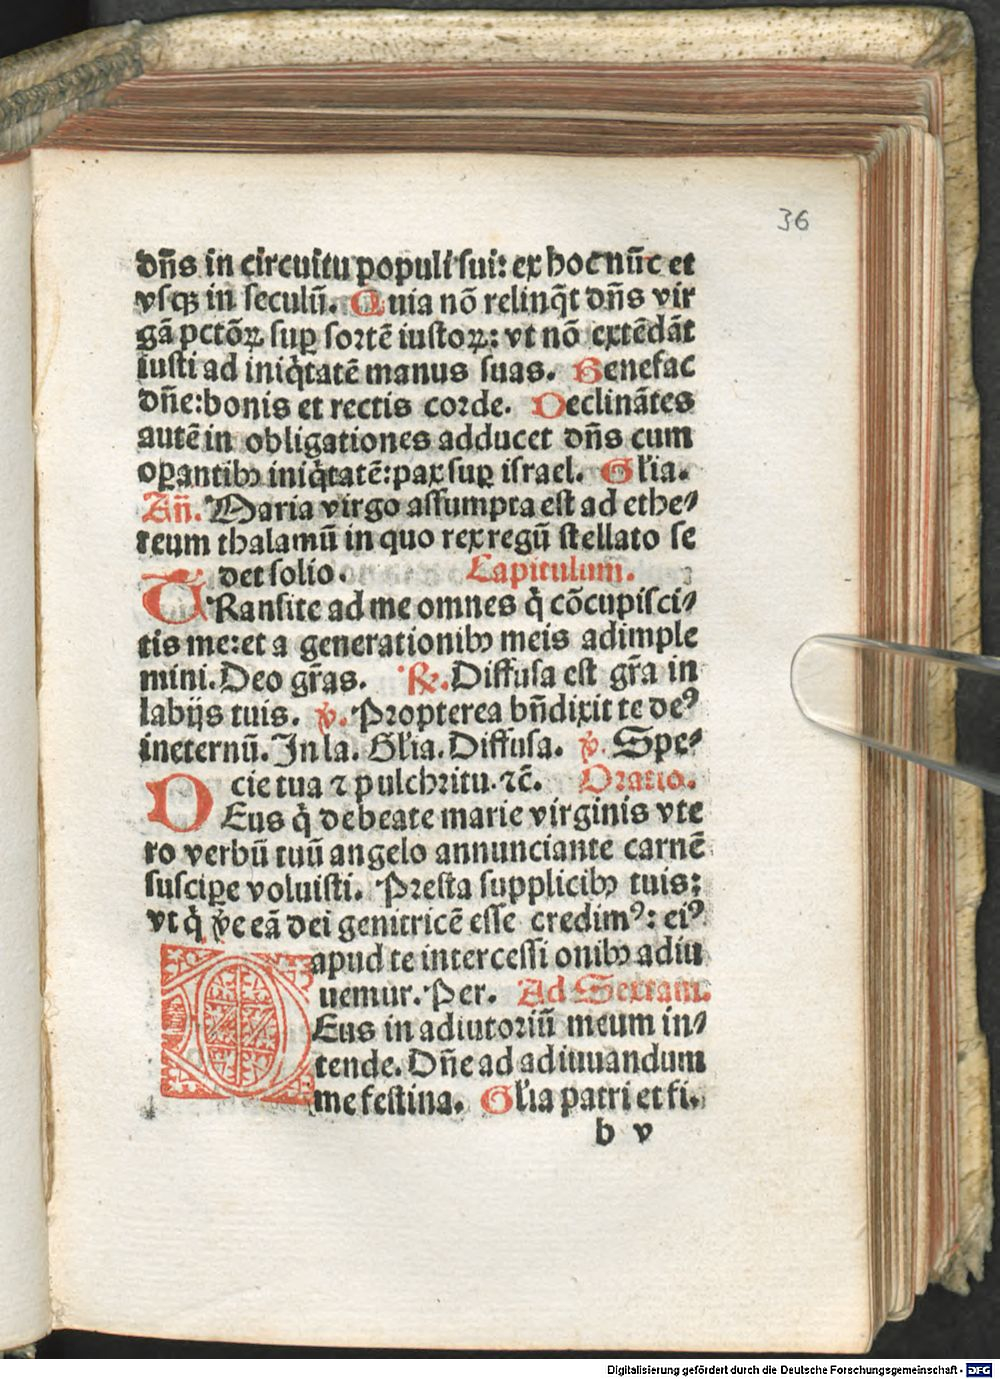 36
dn̄s in circuitu populi sui: ex hoc nūc et
vsqꝫ in seculū. Quia nō relinq̄t dn̄s vir
gā pctōꝝ suꝑ sortē iustoꝝ: vt nō extēdāt
iusti ad iniq̇tatē manus suas. Benefac
dn̄e: bonis et rectis corde. Declinātes
autē in obligationes adducet dn̄s cum
oꝑantibꝰ iniq̇tatē: pax suꝑ israel. Gl'ia.
Añ. Maria virgo assumpta est ad ethe⸗
reum thalamū in quo rex regū stellato se
det solio. Capitulum.
TRansite ad me omnes q̇ cōcupisci⸗
tis me: et a generationibꝰ meis adimple
mini. Deo gr̄as. ℟. Diffusa est gr̄a in
labijs tuis. ℣. Propterea bn̄dixit te deꝰ
ineternū. In la. Gl'ia. Diffusa. ℣. Spe⸗
cie tua ⁊ pulchritu. ⁊c̄. Oratio.
DEus q̇ de beate marie virginis vte
ro verbū tuū angelo annunciante carnē
susciꝑe voluisti. Presta supplicibꝰ tuis:
vt q̇ ṽe eā dei genitricē esse credimꝰ: eiꝰ
apud te intercessi onibꝰ adiu
uemur. Per. Ad Sextam.
DEus in adiutoriū meum in⸗
tende. Dn̄e ad adiuuandum
me festina. Gl'ia patri et fi.
b v
Digitalisierung gefördert durch die Deutsche Forschungsgemeinschaft - DFG